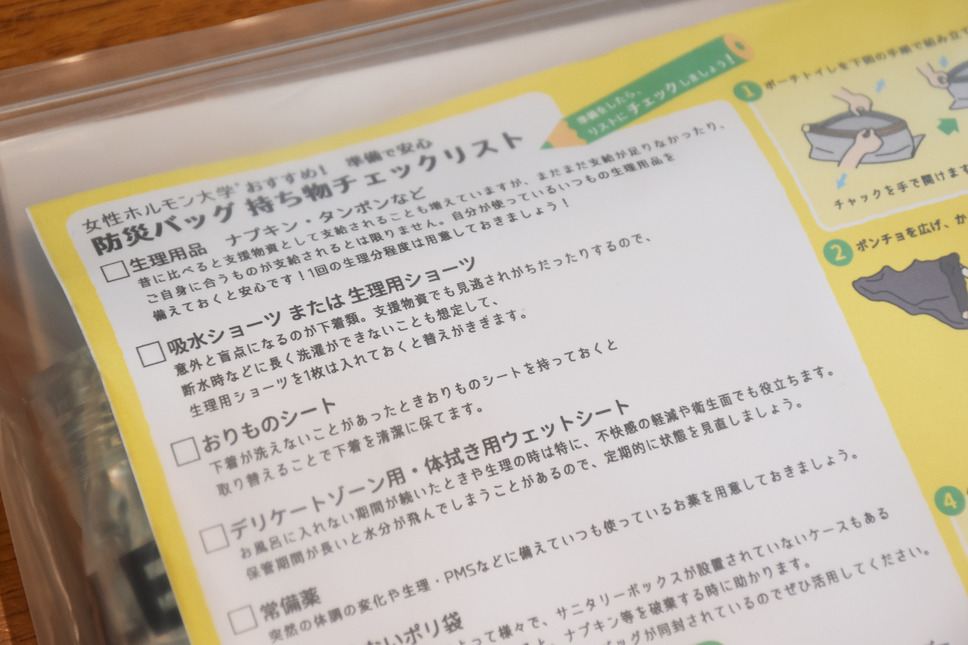 準備をしたら、
リストにチェックしましょう！
女性ホルモン大学®おすすめ！ 準備で安心
防災バッグ 持ち物チェックリスト
生理用品 ナプキン・タンポンなど
昔に比べると支援物資として支給されることも増えていますが、まだまだ支給が足りなかったり、
ご自身に合うものが支給されるとは限りません。自分が使っているいつもの生理用品を
備えておくと安心です！1回の生理分程度は用意しておきましょう！
吸水ショーツ または 生理用ショーツ
意外と盲点になるのが下着類。支援物資でも見逃されがちだったりするので、
断水時などに長く洗濯ができないことも想定して、
生理用ショーツを1枚は入れておくと替えがききます。
おりものシート
下着が洗えないことがあったときおりものシートを持っておくと
取り替えることで下着を清潔に保てます。
デリケートゾーン用・体拭き用ウェットシート
お風呂に入れない期間が続いたときや生理の時は特に、不快感の軽減や衛生面でも役立ちます。
保管期間が長いと水分が飛んでしまうことがあるので、定期的に状態を見直しましょう。
常備薬
突然の体調の変化や生理・PMSなどに備えていつも使っているお薬を用意しておきましょう。
ないポリ袋
よって様々で、サニタリーボックスが設置されていないケースもある
と、ナプキン等を破棄する時に助かります。
バッグが同封されているのでぜひ活用してください。
1 ポーチトイレを下記の手順で組み立て
チャックを手で開けます
2 ポンチョを広げ、か
4